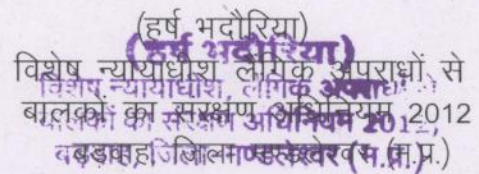 (हर्ष भदौरिया)
(हर्ष भदौरिया)
विशेष न्यायाधीश लैंगिक अपराधों से
विशेष न्यायाधीश, लैंगिक अपराधों से
बालकों का संरक्षण अधिनियम 2012
बालकों का संरक्षण अधिनियम 2012,
बड़वाह जिला मण्डलेश्वर (म.प्र.)
बड़वाह, जिला मण्डलेश्वर (म.प्र.)